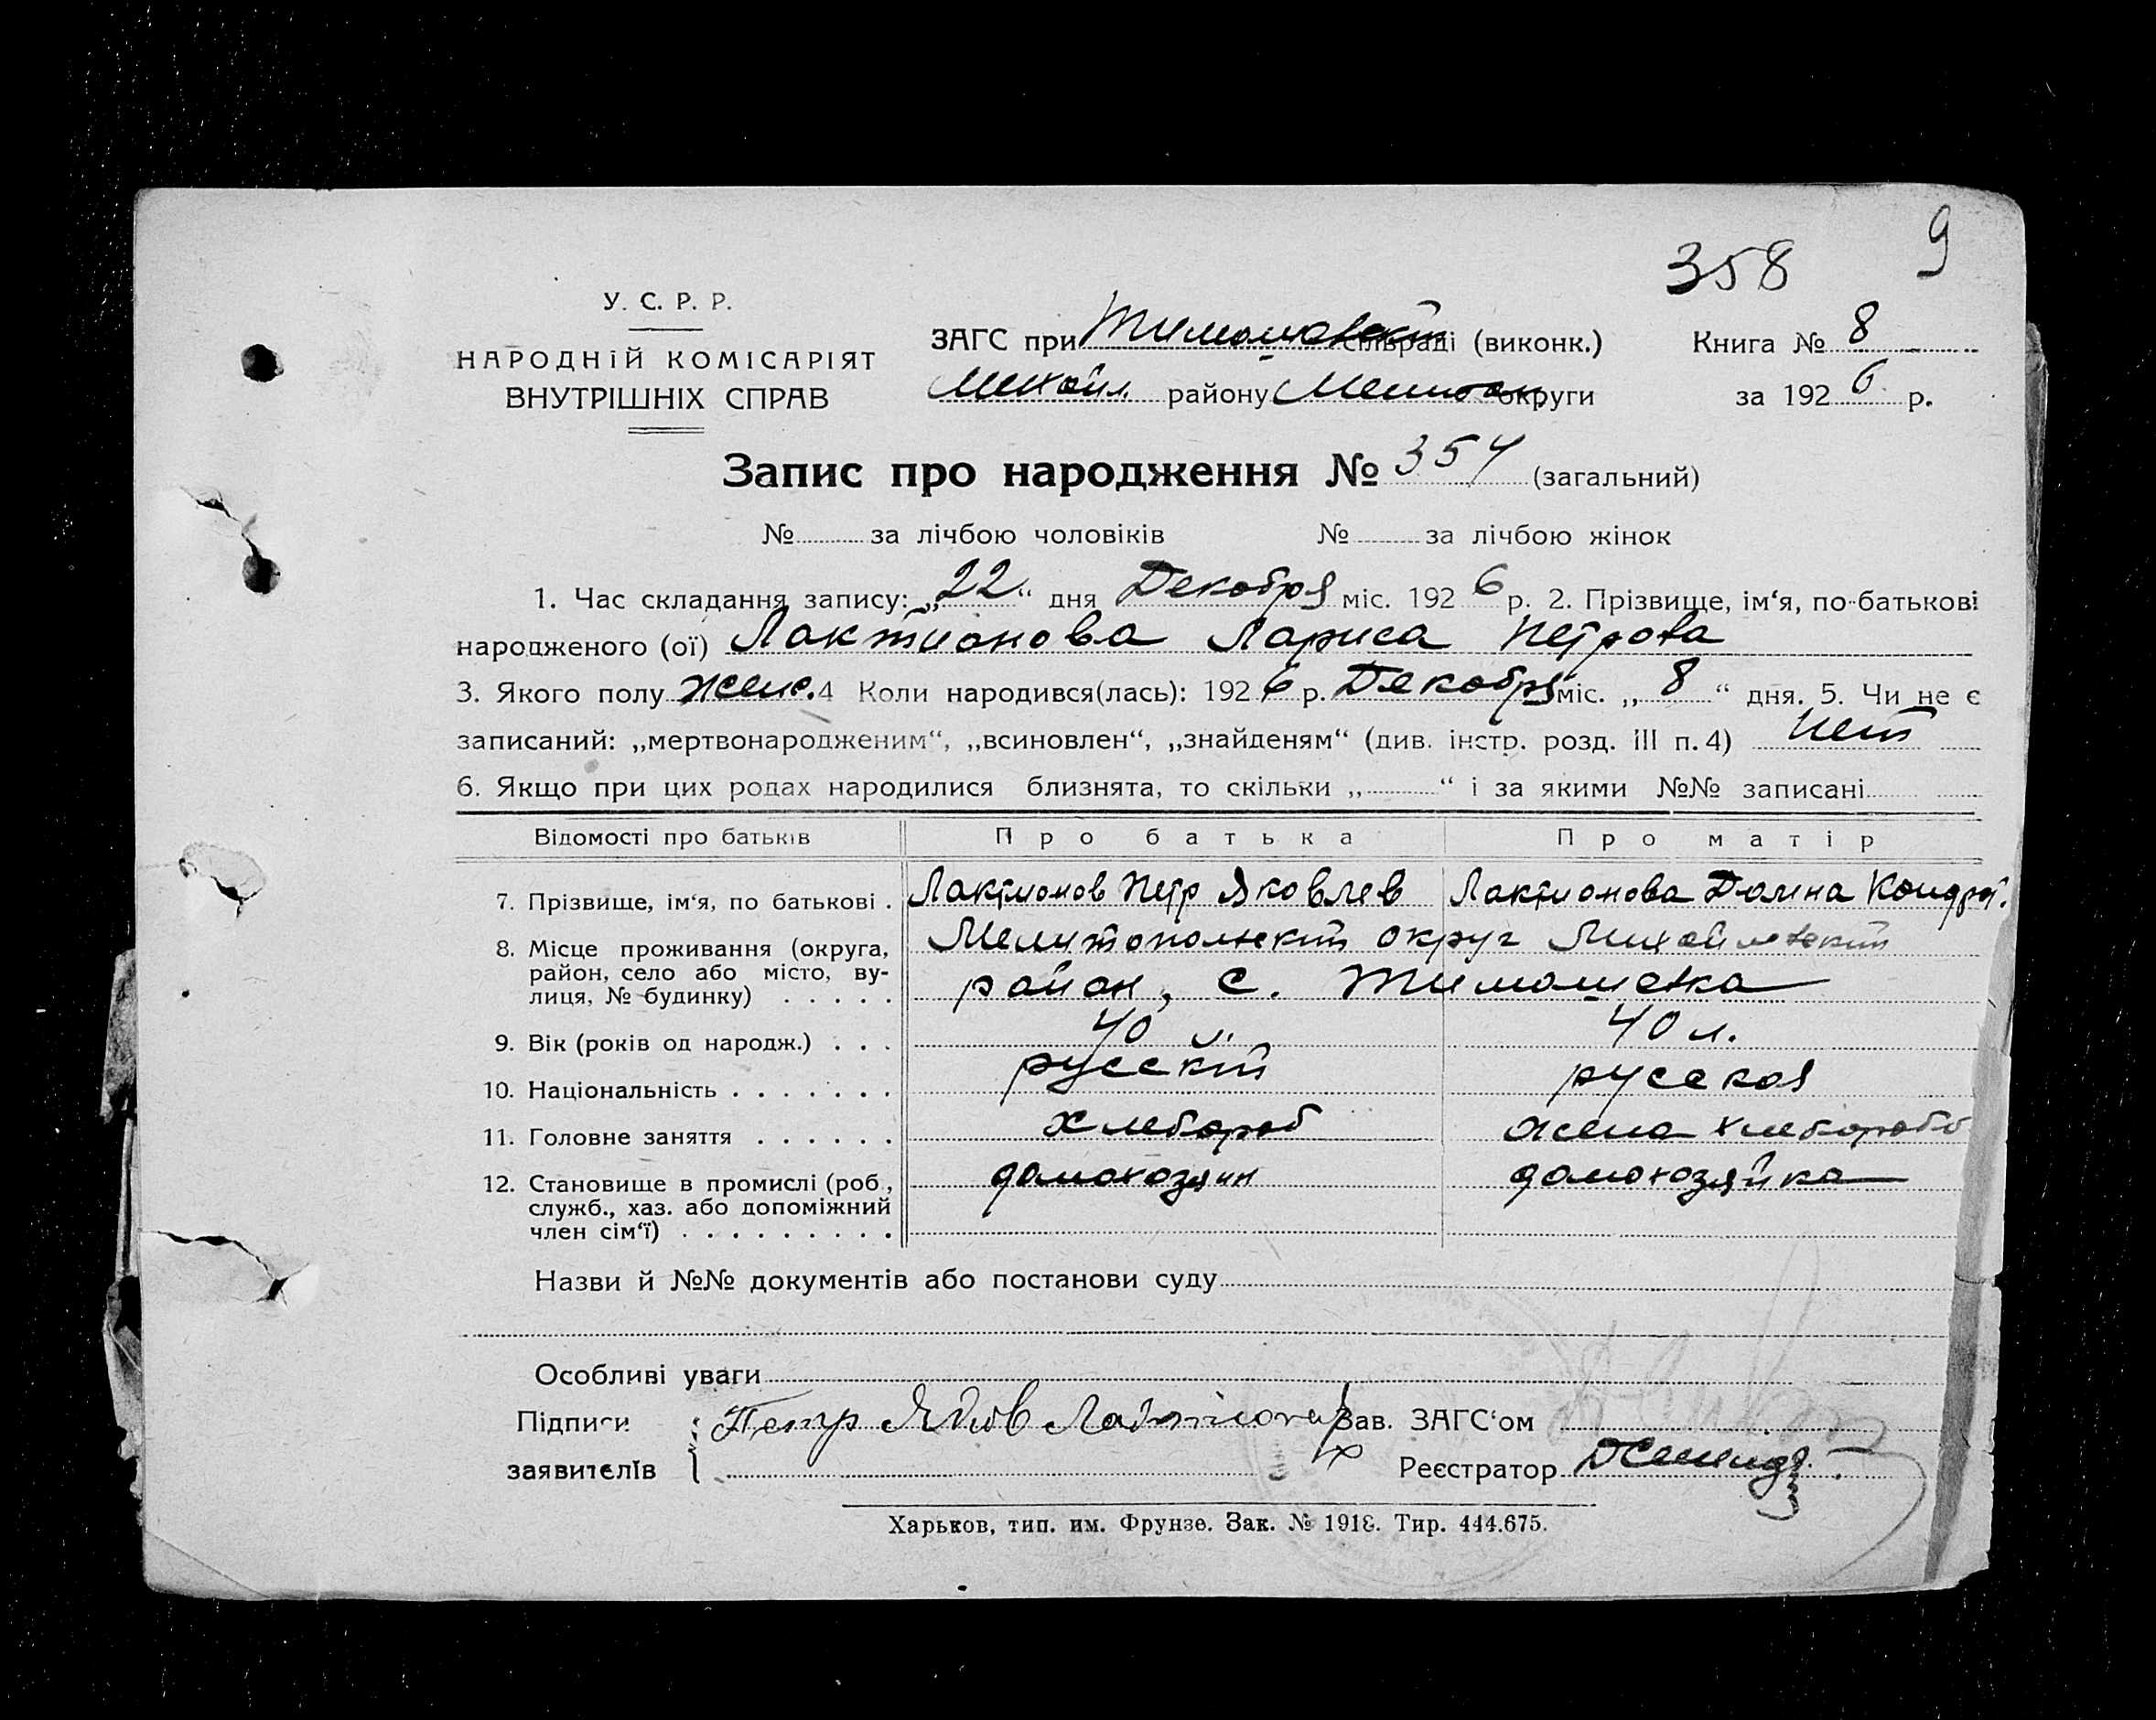 358 9
У. С. Р. Р.
НАРОДНІЙ КОМІСАРІЯТ
ВНУТРІШНІХ СПРАВ
ЗАГС при Тимошовской сільраді (виконк.) Книга № 8
Михайл. району Мелитоп округи за 1926 р.
Запис про народження № 354 (загальний)
№ за лічбою чоловіків № за лічбою жінок
1. Час складання запису: „22“ дня Декабря міс. 1926 р. 2. Прізвище, ім‘я, по-батькові
народженого (ої) Лактионова Лариса Петрова
3. Якого полу женс. 4 Коли народився(лась): 1926 р. Декабря міс. „8“ дня. 5. Чи не є
записаний: „мертвонародженим“, „всиновлен“, „знайденям“ (див. інстр. розд. III п. 4) Нет
6. Якщо при цих родах народилися близнята, то скільки „ “ і за якими №№ записані
Відомості про батьків Про батька Про матір
7. Прізвище, ім‘я, по батькові . Лактионов Петр Яковлев Лактионова Домна Кондрат.
8. Місце проживання (округа, Мелитопольский округ Михайловский
район, село або місто, ву- район, с. Тимошевка
лиця, № будинку) . . . . .
9. Вік (років од народж.) . . . 40 л. 40 л.
10. Національність . . . . . . . русский русская
11. Головне заняття . . . . . . хлебороб жена хлебороба
12. Становище в промислі (роб., домохозяин домохозяйка
служб., хаз. або допоміжний
член сім‘ї) . . . . . . . . .
Назви й №№ документів або постанови суду
Особливі уваги
Підписи Петр Зав. ЗАГС‘ом
заявителів Реєстратор
Харьков, тип. им. Фрунзе. Зак. № 1918. Тир. 444.675.